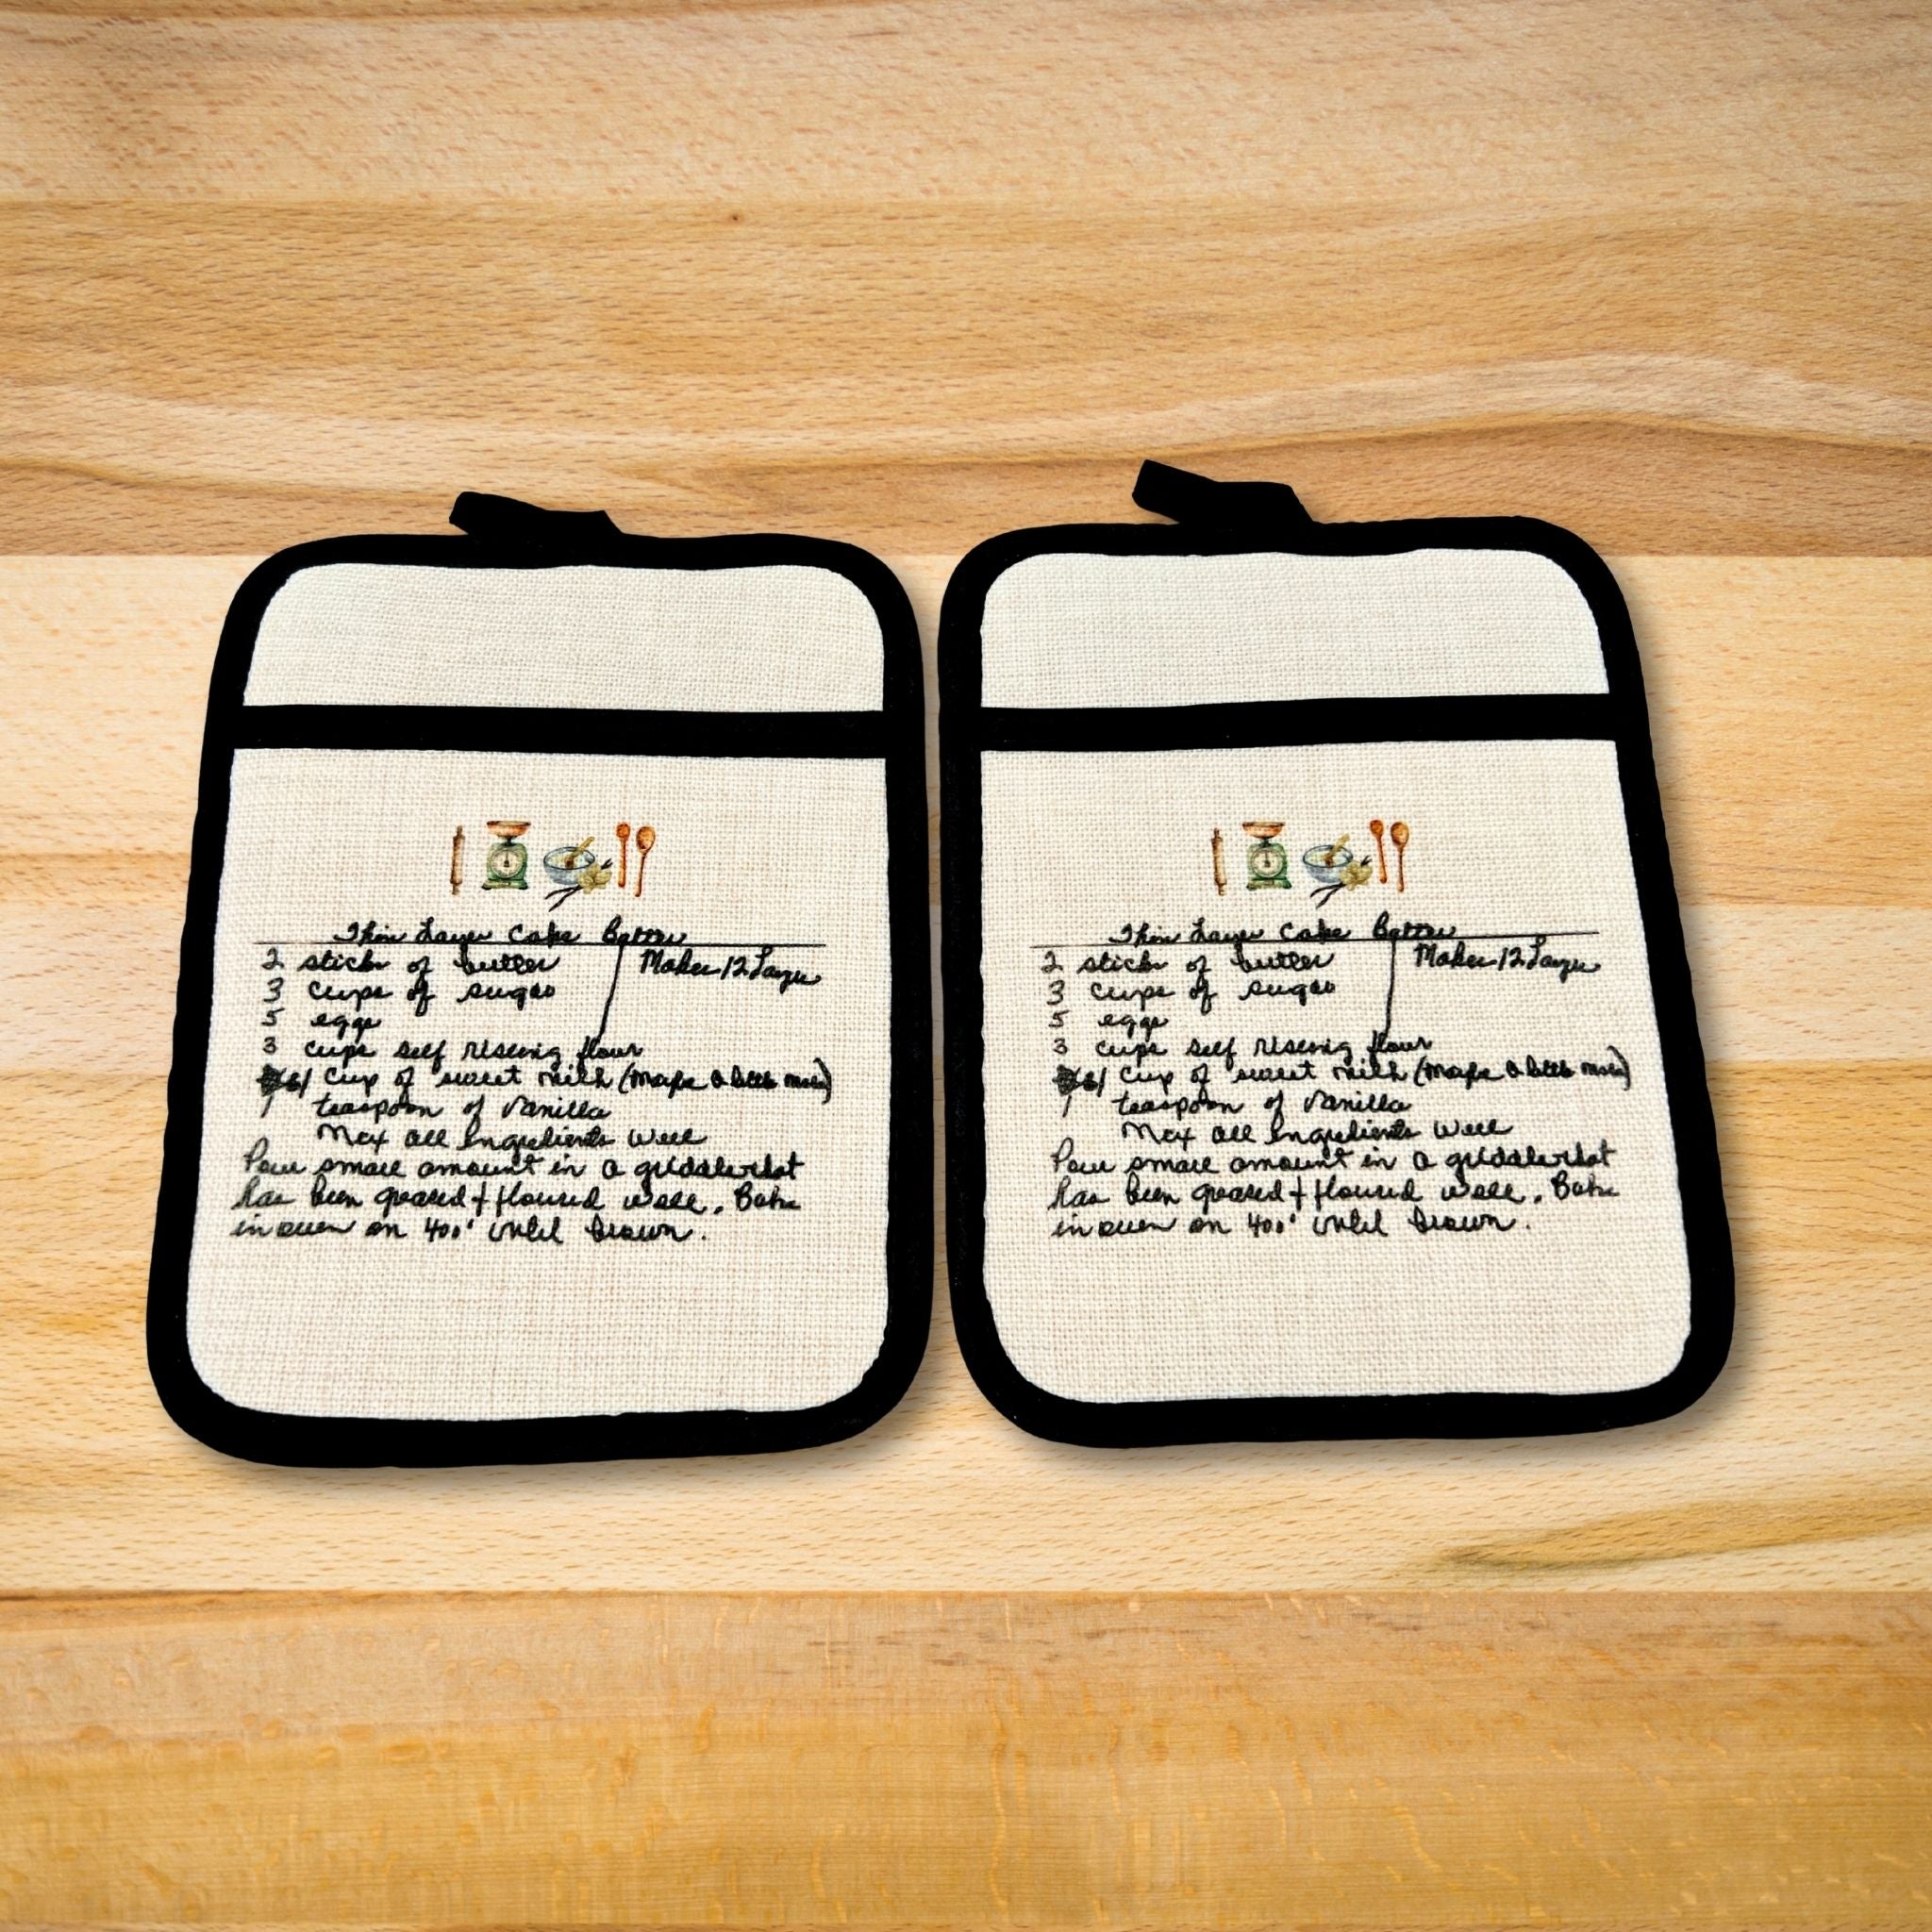 Thin Layer Cake Batter
2 sticks of butter
Makes 12 Layer
3 cups of sugar
5 eggs
3 cups self riseing flour
1 cup of sweet milk (Maybe a little more)
1 teaspoon of vanilla
Mix all Ingredients well
Pour small amount in a griddle that
has been greased + floured well. Bake
in oven on 400° until brown.
Thin Layer Cake Batter
2 sticks of butter
Makes 12 Layer
3 cups of sugar
5 eggs
3 cups self riseing flour
1 cup of sweet milk (Maybe a little more)
1 teaspoon of vanilla
Mix all Ingredients well
Pour small amount in a griddle that
has been greased + floured well. Bake
in oven on 400° until brown.